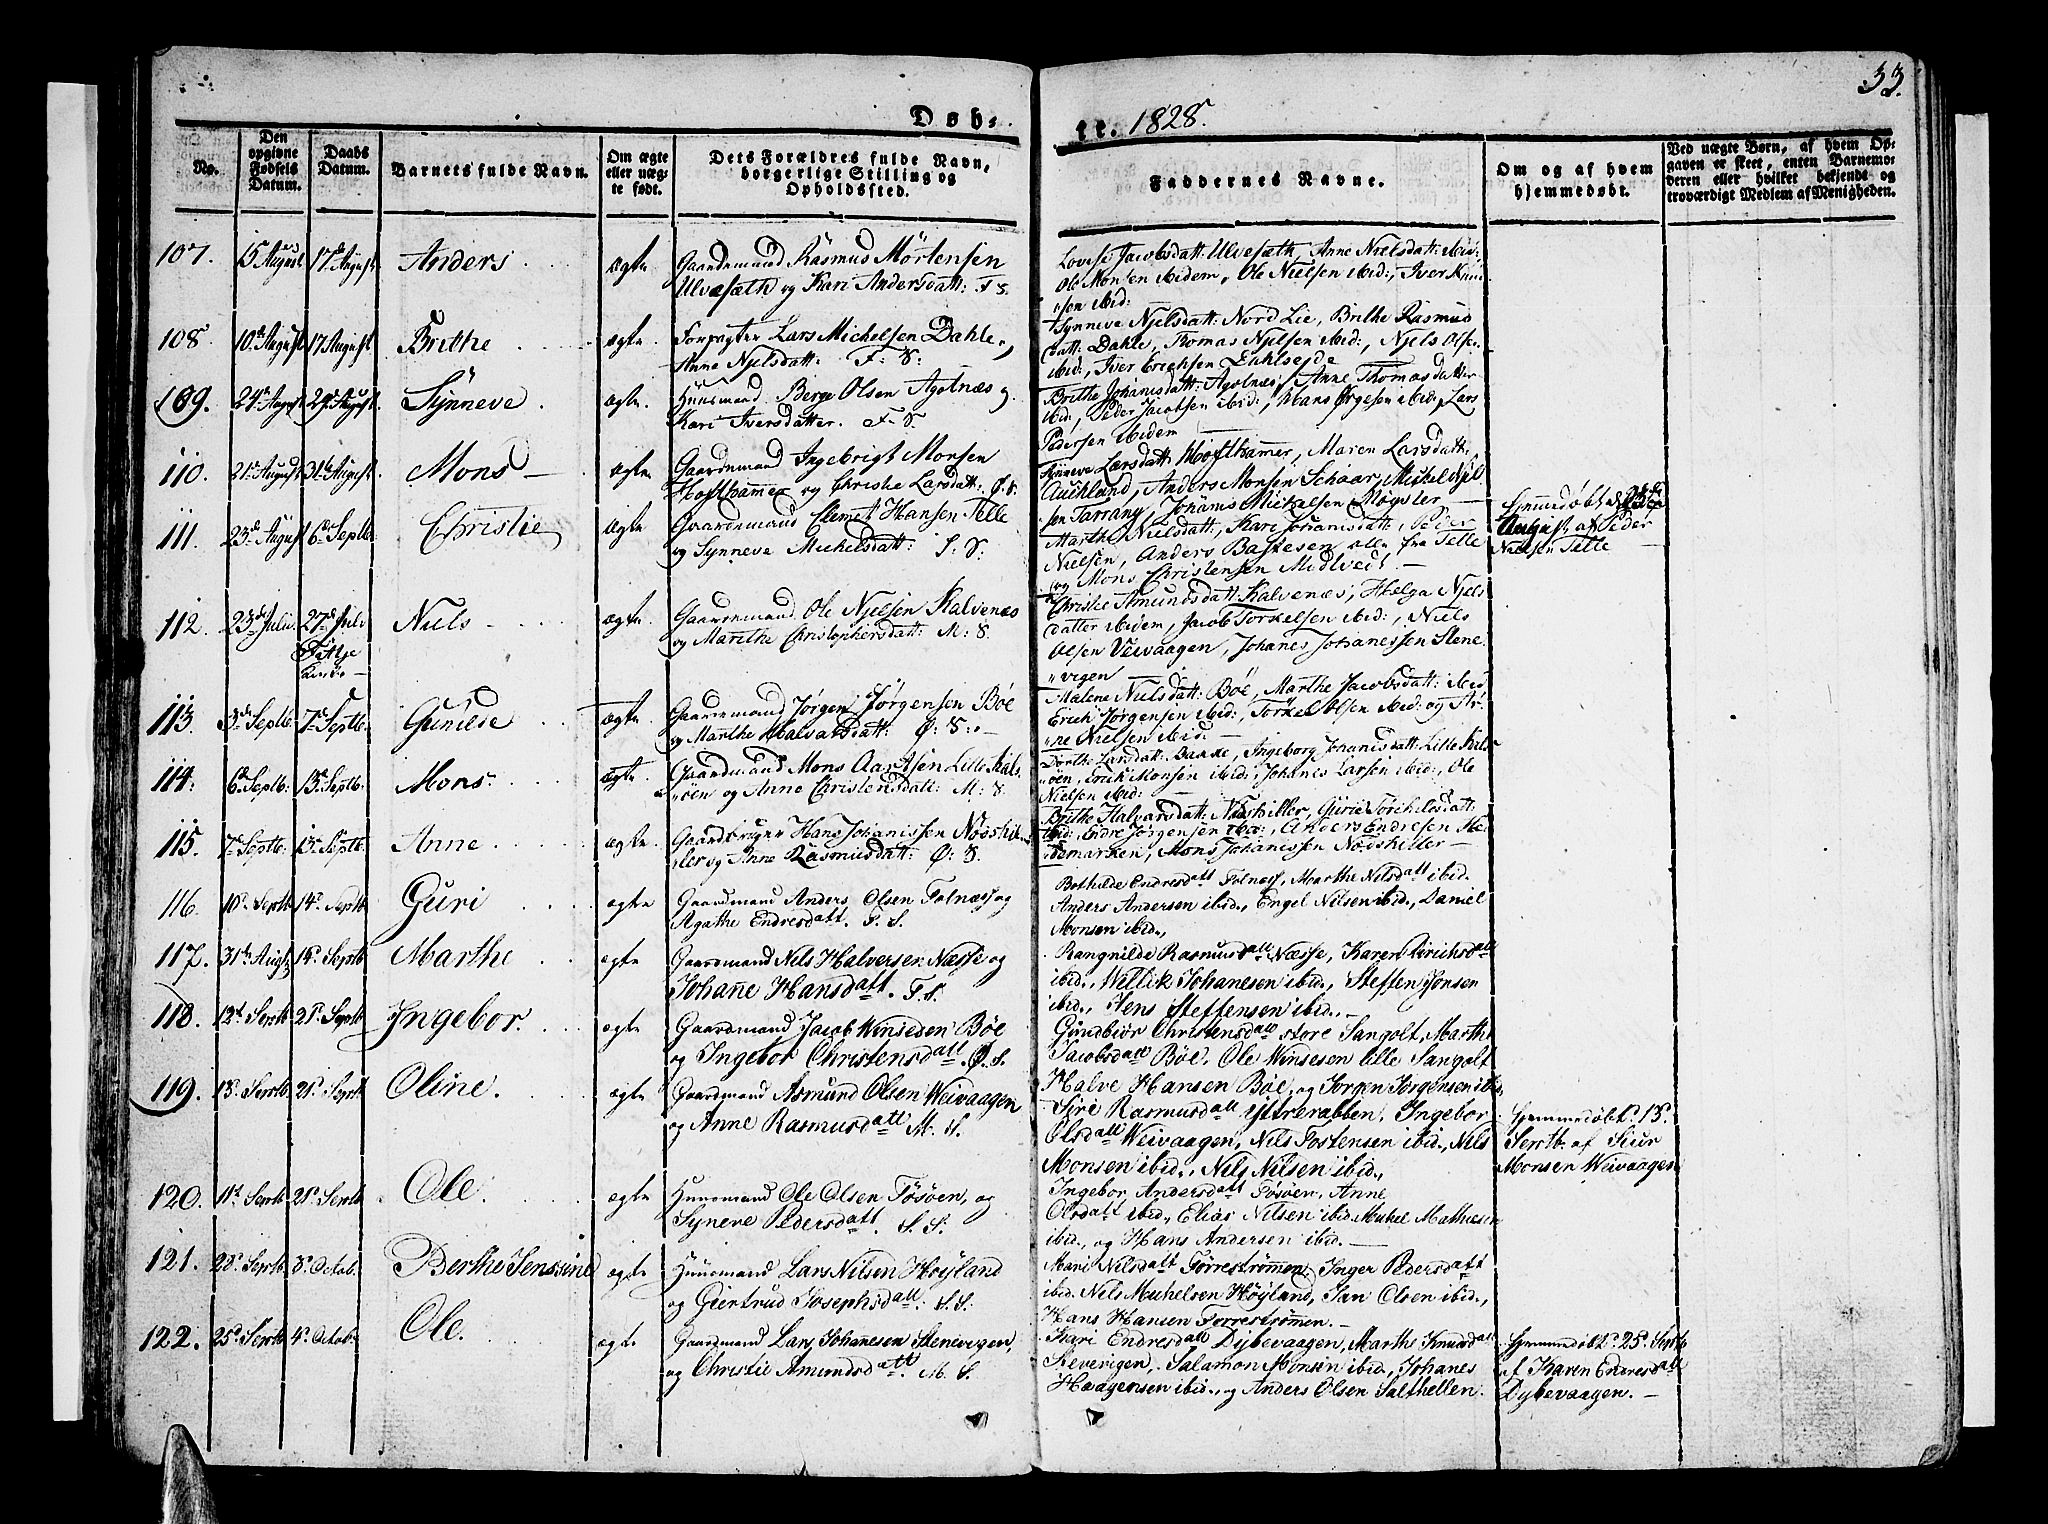 33.
Døb-
te. 1828.
No.
Den opgivne Fødsels Datum.
Daabs Datum.
Barnets fulde Navn.
Om ægte eller uægte født.
Dets Forældres fulde Navn, borgerlige Stilling og Opholdssted.
Faddernes Navne.
Om og af hvem hjemmedøbt.
Ved uægte Børn, af hvem Opgaven er skeet, enten Barnemoderen eller hvilket bekjendt og troværdigt Medlem af Menigheden.
107. 15 August 17de August Anders ægte
Gaardemand Rasmus Mörtensen
Ulvesæth og Kari Andersdatt: F S.
Lovise Jacobsdatt Ulvesæth, Anne Nielsdatt: ibid:
Ole Monsen ibidem, Ole Nielsen ibid:, Iver Knud
"sen ibid:
108. 10de August 17 August Brithe ægte
Forpagter Lars Michelsen Dahle,
Anne Njelsdatt: F: S:
Synneve Njelsdatt: Nord Lie, Brithe Rasmus
datt: Dahle, Thomas Njelsen ibid:, Njels Olsen
ibid:, Iver Erichsen
109. 24de August August Synneve ægte.
Huusmand Berge Olsen Agotnæs og
Kari Iversdatter. F. S.
Brithe Johanisdatt: Agotnæs, Anne Thomasdatter
ibid:, Peder Jacobsen ibid:, Hans ibid, Lars
Pedersen ibidem
110. 21de August 31te August Mons ægte
Gaardemand Ingebrigt Monsen
Hofthammer og Christie Larsdatt: Ø: S.
Synneve Larsdatt: Hofthammer, Maren Larsdatt:
Auchland, Anders Monsen Schaar, Mickel Njel
sen Tarrang, Johanis Mickelsen Møgster
111. 23de August 6te Septb: Christie ægte
Gaardemand Clemet Hansen Telle
og Synneve Michelsdatt: S. S.
Marthe Nielsdatt:, Kari Johanisdatt:, Peder
Nielsen, Anders Bastesen alle fra Telle
og Mons Christensen Midtvedt
August af Peder
Nielsen Telle
112. 23de Juli 27de Juli
Kirke
Niels ægte
Gaardemand Ole Njelsen Kalvenæs
og Marithe Christophersdatt: M: S.
Christie Amundsdatt: Kalvenæs, Helga Njels
datter ibidem, Jacob Torkelsen ibid:, Niels
Olsen Veivaagen, Johanes Johanessen Stene
"vigen
113. 3de Septb. 7de Septb. Gunilde ægte.
Gaardemand Jörgen Jörgensen Böe
og Marithe Halvarsdatt: Ø: S:
Malene Nielsdatt: Böe, Marthe Jacobsdatt: ibid
Erich Jörgensen ibid:, Torkel Olsen ibid: og Ar
"ne Nielsen ibid:
114. 6te Septb: 13de Septb: Mons ægte
Gaardmand Mons Lille Kals
"öen og Anne Christensdatt: M: S
Dorth: Larsdatt: Bakke, Ingeborg Johanisdatt: Lille Kals
"öen, Erik Monsen ibid:, Johanes Larsen ibid:, Ole
Nielsen ibid:
115. 7de Septb: 13de Septb Anne ægte
Gaardbruger Hans Johanissen
ler og Anne Rasmusdatt: Ø: S.
Brithe Halvarsdatt:
ibid:, Endre Jörgensen ibid:, Anders Endresen He
demarken, Mons Johanissen
116. 10de Septb 14de Septb Guri ægte
Gaardmand Anders Olsen Folnæs og
Agathe Endresdatt. F. S.
Bothilde Endresdatt Folnæs, Marthe Nilsdatt ibid.
Anders Andersen ibid., Engel Nilsen ibid., Daniel
Monsen ibid.,
117. 31te Augt 15de Septb Marthe ægte
Gaardmand Nils Halversen Næsse og
Johanne Hansdatt. F. S.
Rangnilde Rasmusdatt Næsse, Karen
ibid., Willik Johanesen ibid., Steffen Jonsen
ibid., Jens Steffensen ibid.
118. 12te Septb 21de Septb Ingebor. ægte
Gaardmand Jacob Böe
og Ingebor Christensdatt. Ø. S.
Gundbiör Christensdatt store Sangolt, Marthe
Jacobsdatt Böe, Ole lille Sangolt
Halve Hansen Böe, og Jorgen Jorgensen ibid.
119. 13de Septb 21de Septb Oline. ægte
Gaardmand Asmund Olsen Weivaagen
og Anne Rasmusdatt M. S.
Siri Rasmusdatt ytrerabben, Ingebor
Olsdatt Weivaagen, Nils Tostensen ibid., Nils
Monsen ibid., Nils Nilsen ibid.,
Hjemmedøbt 13de
Septb af Siur
Monsen Weivaagen
120. 11te Septb 21de Septb Ole. ægte
Huusmand Ole Olsen Tösöen, og
Syneve Pedersdatt. S. S.
Ingebor Andersdatt Tösöen, Anne
Olsdatt ibid., Elias Nilsen ibid. Mikel Mathiesen
ibid., og Hans Andersen ibid.
121. 28de Septb 3de Octob. Berthe Jenssine ægte
Huusmand Lars Nilsen Höyland
og Giertrud Josephsdatt: S. S:
Mari Nilsdatt Forreströmmen, Inger Pedersdatt
ibid. Nels Mikelsen Höyland, Jan Olsen ibid.,
Hans Hansen Forreströmen.
122. 25de Septb 4de Octob. Ole. ægte
Gaardmand Lars Johannesen Stenevigen,
og Christie Amundsdatt. M. S.
Kari Endresdatt Dybevaagen, Marthe Knudsdatt
Salamon Monsen ibid., Johanes
Haagensen ibid., og Anders Olsen Salthellen.
Hjemmedöbt 25de Septb
af Karen Endresdatt
Dybevaagen.